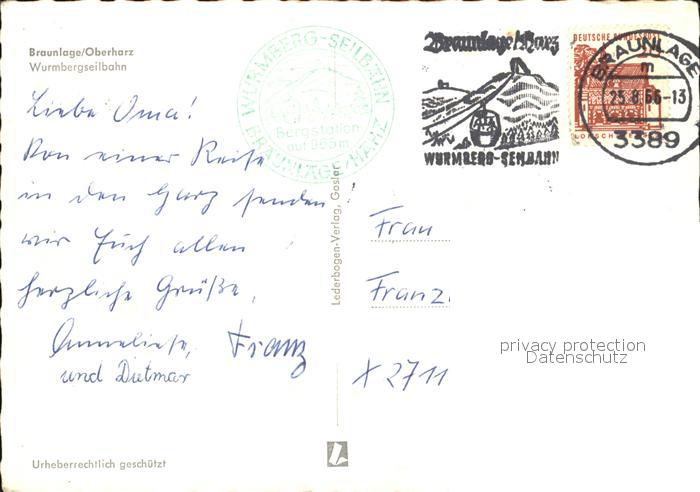 Braunlage/Oberharz
Wurmbergseilbahn
WURMBERG-SEILBAHN
Bergstation
auf 965 m
BRAUNLAGE/HARZ
Braunlage/Harz
WURMBERG-SEILBAHN
DEUTSCHE BUNDESPOST
LORSCH
BRAUNLAGE
m
25.8.66-13
3389
Liebe Oma!
Von einer Reise
in den Harz senden
wir Euch allen
herzliche Grüße,
Anneliese, Franz
und Dietmar
Lederbogen-Verlag, Goslar
Frau
Franz
X 2711
privacy protection
Datenschutz
Urheberrechtlich geschützt